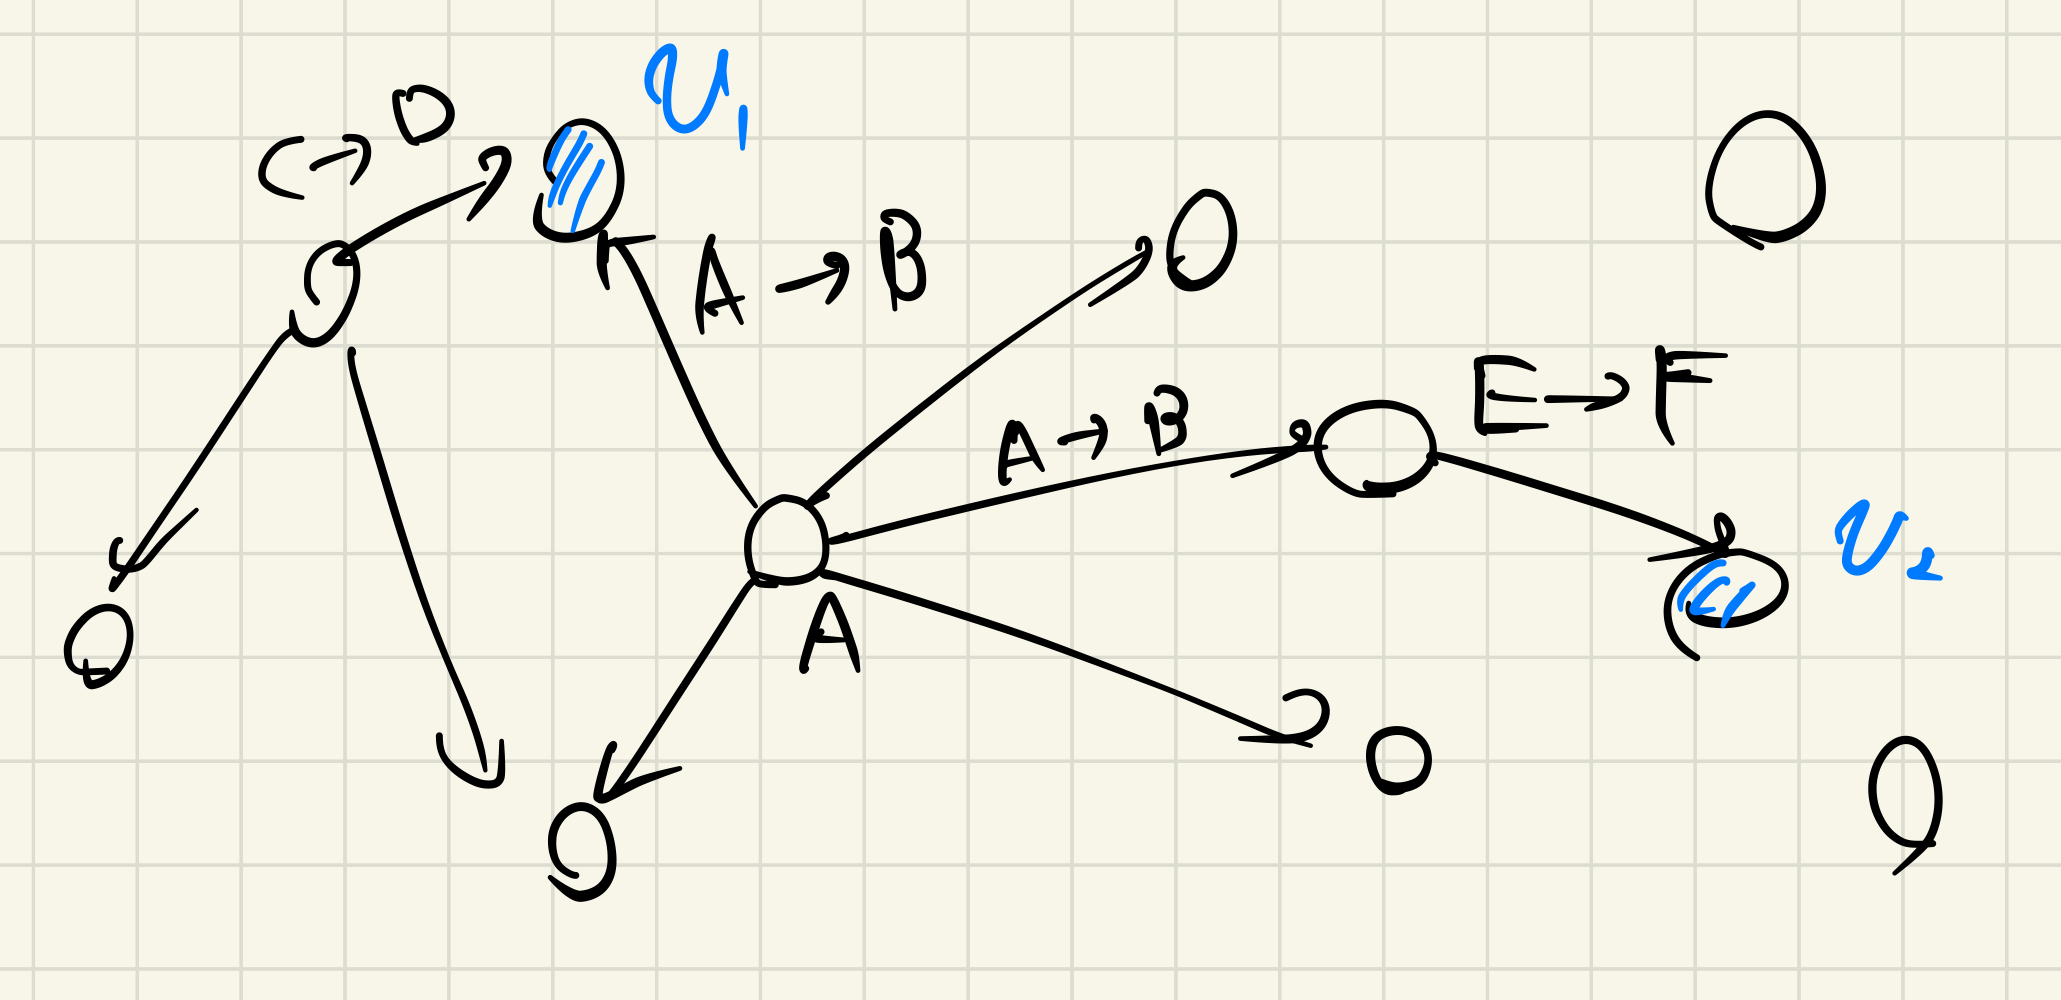 U₁
C → D
A → B
A → B
E → F
U₂
A